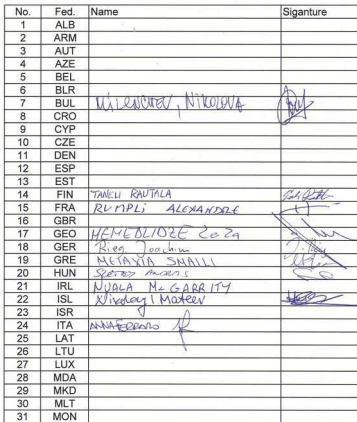 No. Fed. Name Siganture
1 ALB
2 ARM
3 AUT
4 AZE
5 BEL
6 BLR
7 BUL NIKOLOVA
8 CRO
9 CYP
10 CZE
11 DEN
12 ESP
13 EST
14 FIN TANELI RAUTALA
15 FRA RUMPLI ALEXANDRE
16 GBR
17 GEO HEMEDLIDZE ZAZA
18 GER Rieg Joachim
19 GRE METAXIA SMAILI
20 HUN
21 IRL NUALA Mc GARRITY
22 ISL Nikolay I Mateev
23 ISR
24 ITA ANNA FERRARO
25 LAT
26 LTU
27 LUX
28 MDA
29 MKD
30 MLT
31 MON